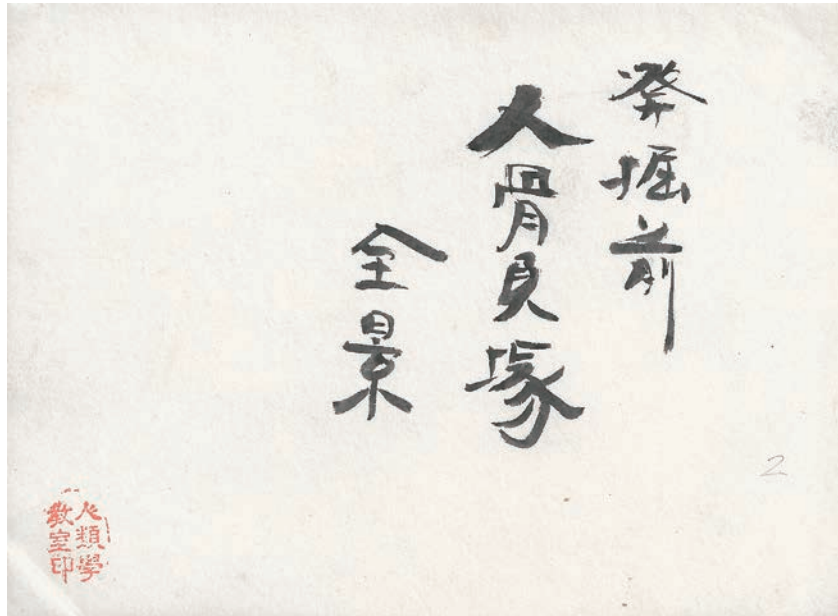 発掘前
人骨貝塚
全景
2
人類學
教室印